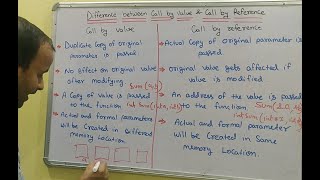 Difference between Call by value & Call by Reference
Call by value
Duplicate Copy of original parameter is passed
No effect on original value after modifying
sum(a,b)
A Copy of value is passed to the function
Actual and formal parameters will be Created in different memory location
Call by reference
Actual Copy of original parameter is passed
original value gets affected if value is modified
An address of the value is passed to the function
Actual and formal parameter will be Created in Same memory Location.